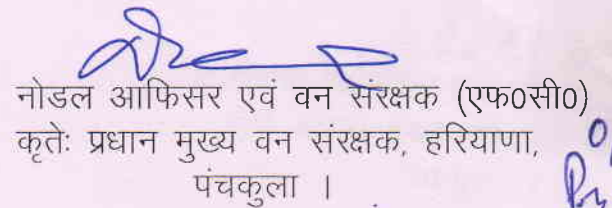 नोडल आफिसर एवं वन संरक्षक (एफ0सी0)
कृतेः प्रधान मुख्य वन संरक्षक, हरियाणा,
पंचकुला ।